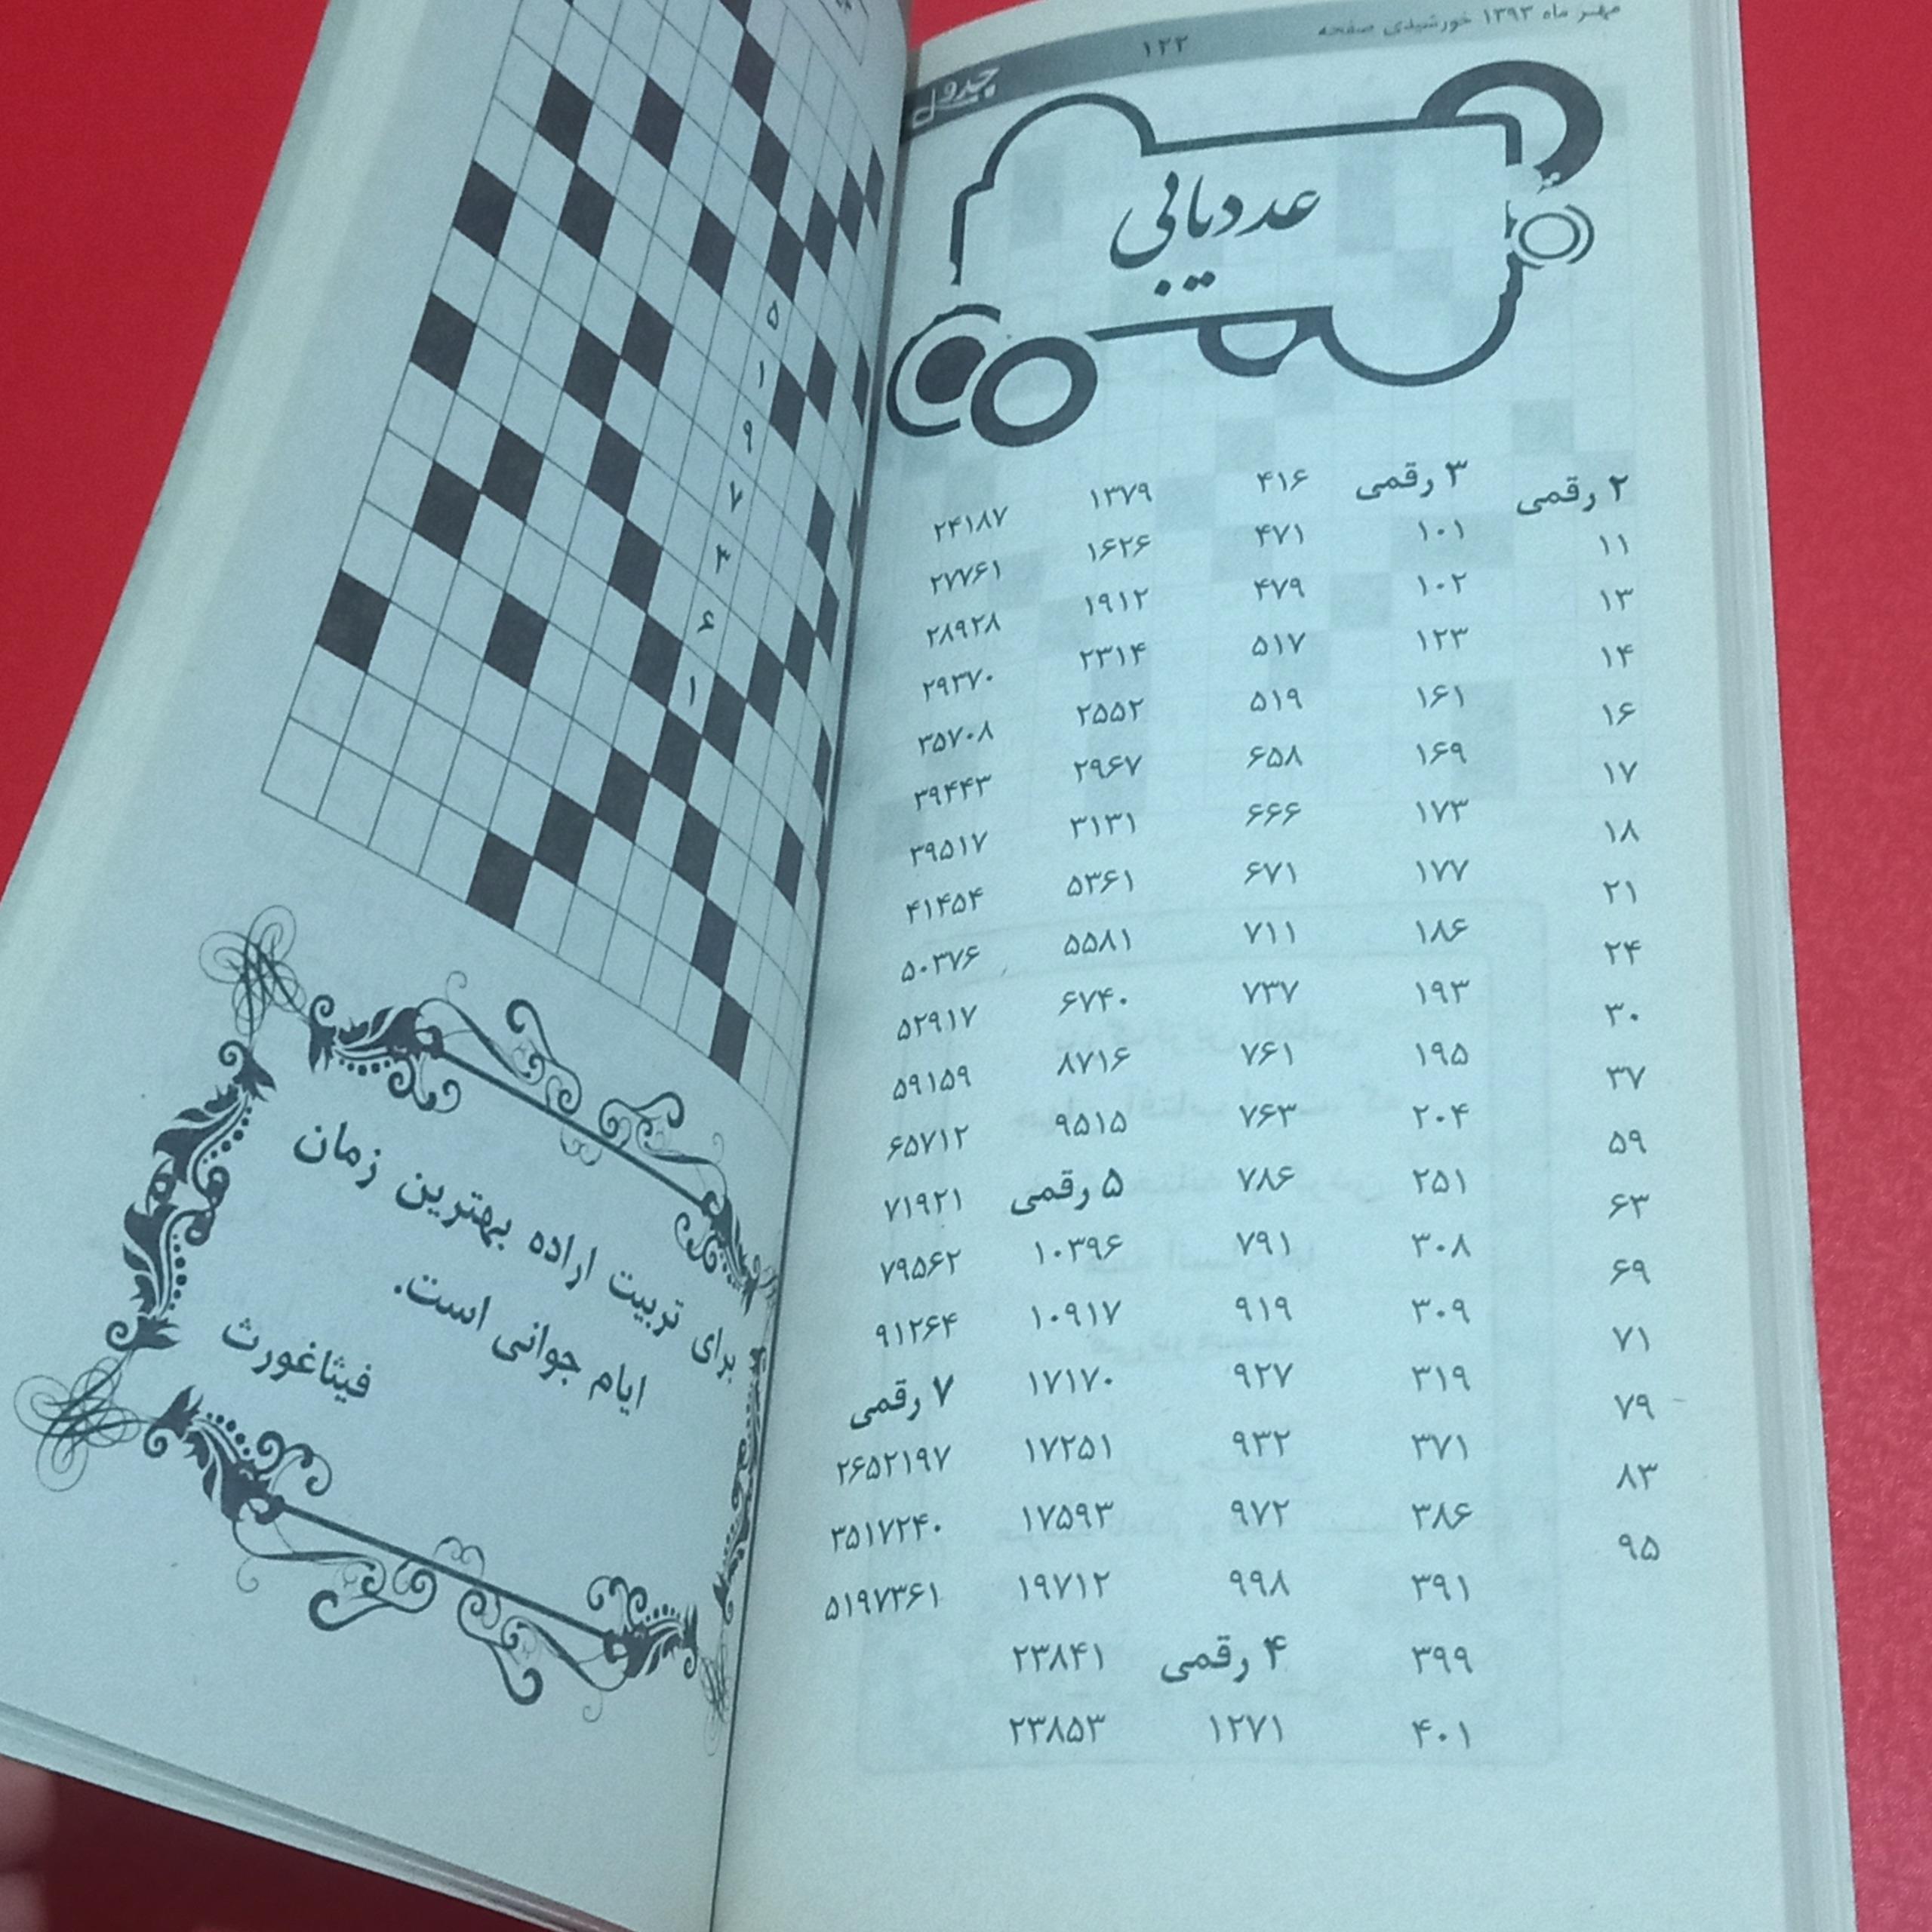 مهر ماه ۱۳۹۳ خورشیدی صفحه ۱۲۲
جدول
عددیابی
۲ رقمی
۱۱
۱۳
۱۴
۱۶
۱۷
۱۸
۲۱
۲۴
۳۰
۳۷
۵۹
۶۳
۶۹
۷۱
۷۹
۸۳
۹۵
۳ رقمی
۱۰۱
۱۰۲
۱۲۳
۱۶۱
۱۶۹
۱۷۳
۱۷۷
۱۸۶
۱۹۳
۱۹۵
۲۰۴
۲۵۱
۳۰۸
۳۰۹
۳۱۹
۳۷۱
۳۸۶
۳۹۱
۳۹۹
۴۰۱
۴۱۶
۴۷۱
۴۷۹
۵۱۷
۵۱۹
۶۵۸
۶۶۶
۶۷۱
۷۱۱
۷۳۷
۷۶۱
۷۶۳
۷۸۶
۷۹۱
۹۱۹
۹۲۷
۹۳۲
۹۷۲
۹۹۸
۴ رقمی
۱۲۷۱
۱۳۷۹
۱۶۲۶
۱۹۱۲
۲۳۱۴
۲۵۵۲
۲۹۶۷
۳۱۳۱
۵۳۶۱
۵۵۸۱
۶۷۴۰
۸۷۱۶
۹۵۱۵
۵ رقمی
۱۰۳۹۶
۱۰۹۱۷
۱۷۱۷۰
۱۷۲۵۱
۱۷۵۹۳
۱۹۷۱۲
۲۳۸۴۱
۲۳۸۵۳
۲۴۱۸۷
۲۷۷۶۱
۲۸۹۲۸
۲۹۳۷۰
۳۵۷۰۸
۳۹۴۴۳
۳۹۵۱۷
۴۱۴۵۴
۵۰۳۷۶
۵۲۹۱۷
۵۹۱۵۹
۶۵۷۱۲
۷۱۹۲۱
۷۹۵۶۲
۹۱۲۶۴
۷ رقمی
۲۶۵۲۱۹۷
۳۵۱۷۲۴۰
۵۱۹۷۳۶۱
۵
۱
۹
۷
۳
۶
۱
برای تربیت اراده بهترین زمان
ایام جوانی است.
فیثاغورث